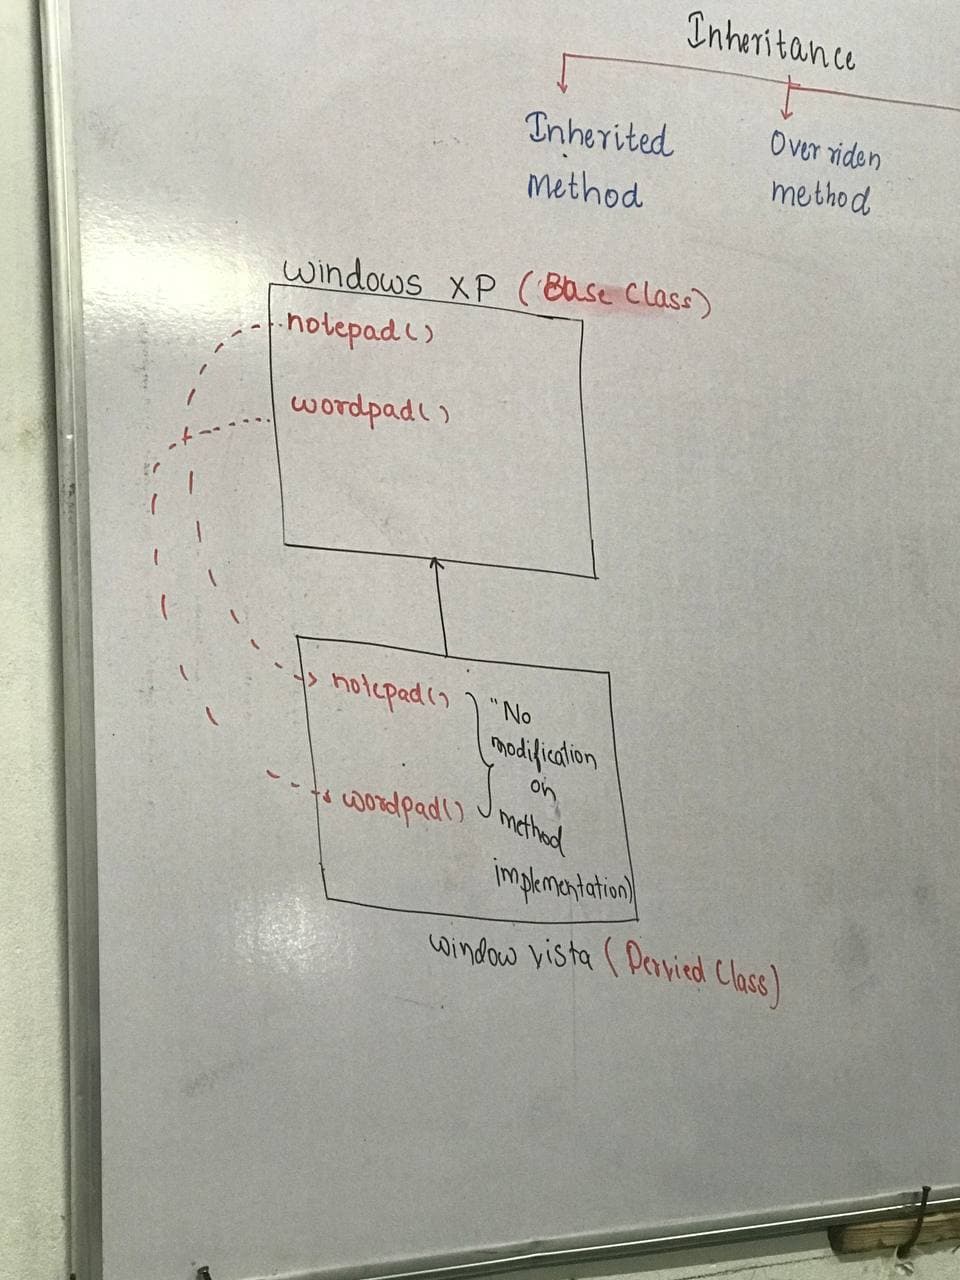 Inheritance
Inherited
method
Overriden
method
Windows XP (Base Class)
notepad()
wordpad()
notepad()
"No
modification
on
method
implementation)
wordpad()
window vista (Dervied Class)